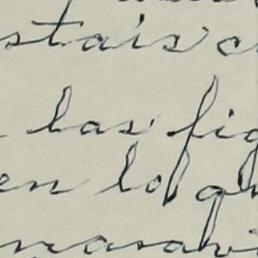 stais c
las fig
en lo qu
maravi